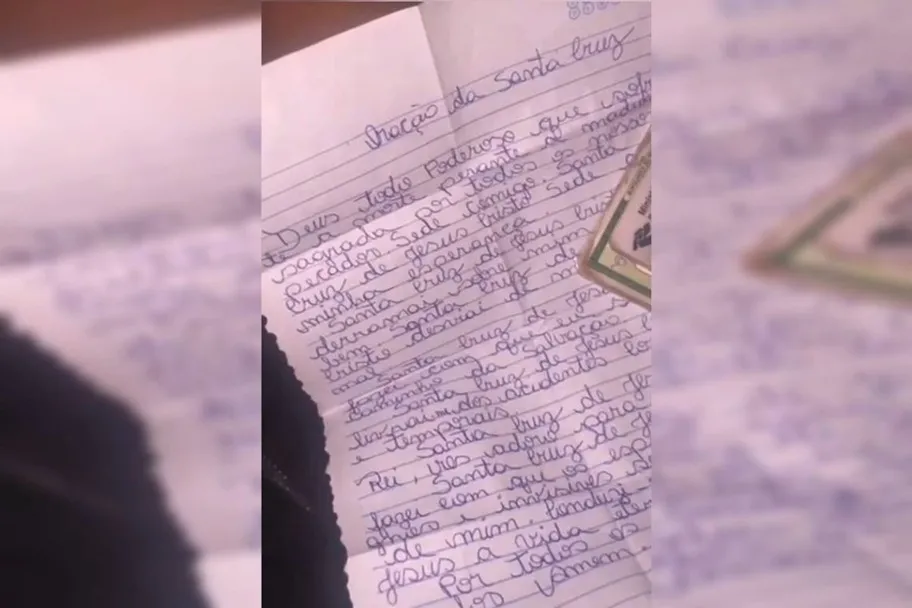 Oração da Santa Cruz
Deus todo Poderoso que sofr
te a morte perante a madei
sagrada por todos os nosso
pecados, sede comigo. Santa
Cruz de Jesus Cristo, sede a
minha esperança.
Santa Cruz de Jesus Cris
derramai sobre mim
bem. Santa Cruz de
Cristo desvai de
mal. Santa Cruz de Jesu
fazei com que eu
caminho da Salvação
Santa Cruz de Jesus
livrai-me dos acidentes co
e temporais.
Santa Cruz de Je
Rei, vos adoro para
Santa Cruz de Je
fazei com que os esp
e invisíveis
de mim. Conduzi
Jesus a vida ete
Por todos os
Amem.